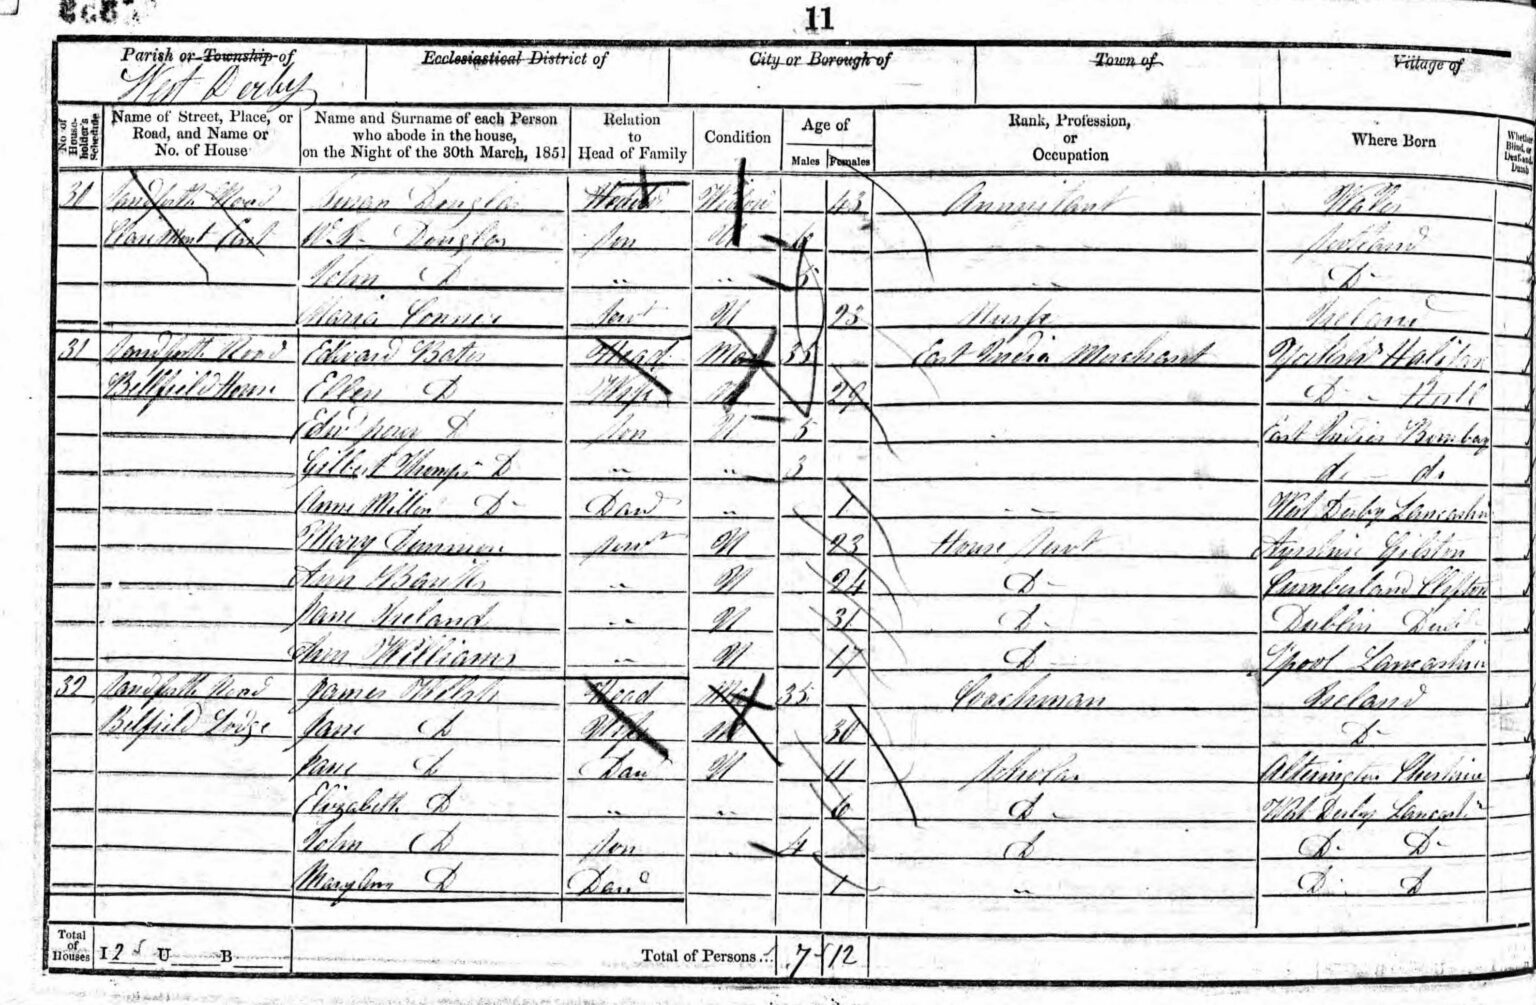 11
Parish or Township of Ecclesiastical District of City or Borough of Town of Village of
West Derby
No. of Householder's Schedule Name of Street, Place, or Road, and Name or No. of House Name and Surname of each Person who abode in the house, on the Night of the 30th March, 1851 Relation to Head of Family Condition Age of Males Females Rank, Profession, or Occupation Where Born Whether Blind, or Deaf-and-Dumb
30 Sandforth Road Susan Douglas Head Widow 43 Annuitant Wales
Claremont Douglas Son U 6 Scotland
John D 5 D
Maria Connor Servt U 23 Nurse Ireland
31 Sandforth Road Edward Bates Head Mar 35 East India Merchant Halifax
Bellfield House Ellen D Wife 29 D Hull
Edwd Percy D Son U 5 East Indies Bombay
Gilbert Thompn D " " 3 do do
Anne D Daur " 1 West Derby Lancashire
Mary Servt U 23 House Servt Ayrshire
Ann Banks " U 24 D Cumberland Clifton
Jane Ireland " U 31 D Dublin
Ann Williams " U 17 D Lpool Lancashire
32 Sandforth Road James Head Mar 35 Coachman Ireland
Belfield Lodge Jane D Wife M 30 D
Jane D Daur U 11 Scholar Cheshire
Elizabeth D " " 6 D West Derby Lancash
John D Son 4 D D D
Mary Ann D Daur 1 " D D
Total of Houses I 2 U B Total of Persons 7 12